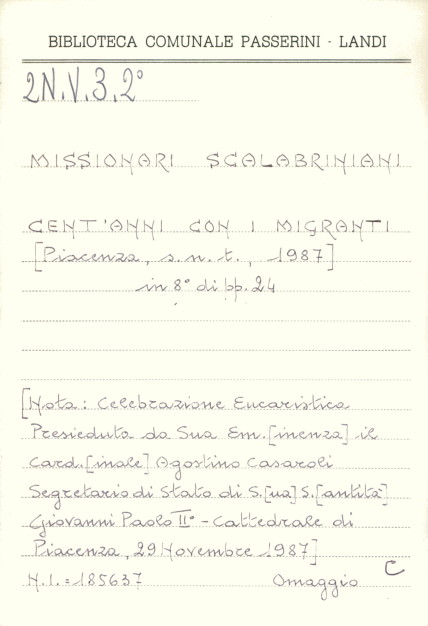 BIBLIOTECA COMUNALE PASSERINI - LANDI
2N.V.3.2°
MISSIONARI SCALABRINIANI
CENT'ANNI CON I MIGRANTI
[Piacenza, s.n.t., 1987]
in 8° di pp. 24
[Nota: Celebrazione Eucaristica
Presieduta da Sua Em.[inenza] il
Card.[inale] Agostino Casaroli
Segretario di Stato di S.[ua] S.[antità]
Giovanni Paolo II° - Cattedrale di
Piacenza, 29 Novembre 1987]
N.I. = 185637 Omaggio C